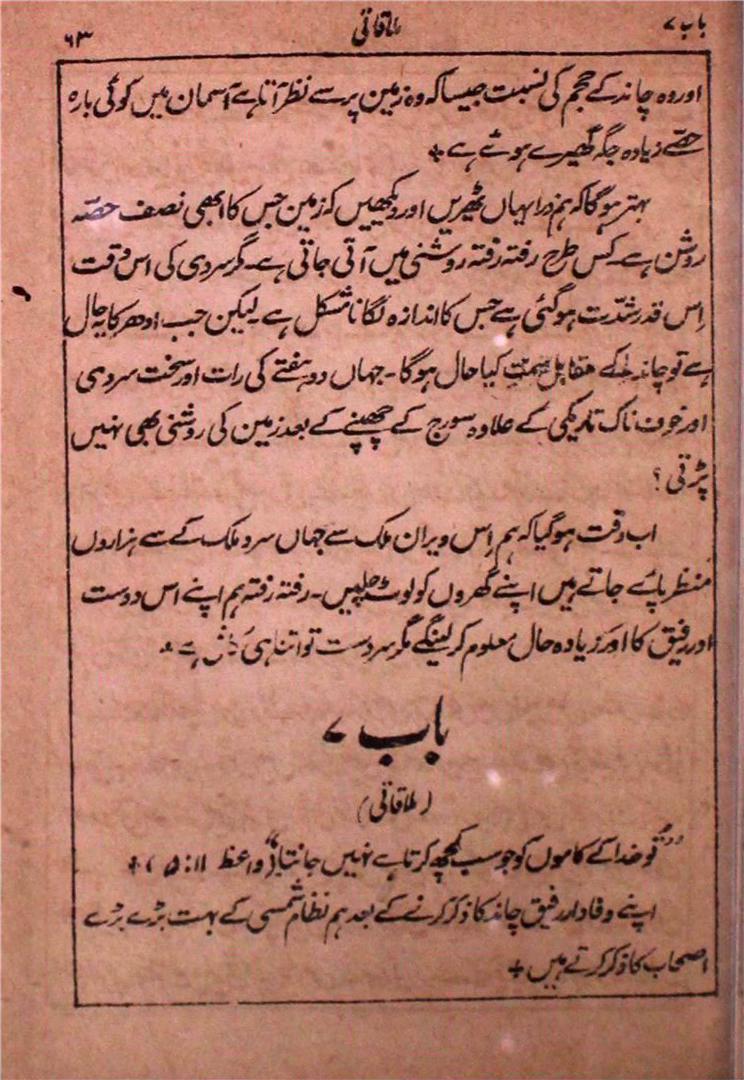 باب ۷ ملاقاتی ۶۳
اور وہ چاند کے حجم کی نسبت جیسا کہ وہ زمین پر سے نظر آتا ہے آسمان میں کوئی بارہ
حصّے زیادہ جگہ گھیرے ہوئے ہے +
بہتر ہوگا کہ ہم ذرا یہاں ٹھیریں اور دیکھیں کہ زمین جس کا ابھی نصف حصّہ
روشن ہے۔ کس طرح رفتہ رفتہ روشنی میں آتی جاتی ہے۔ گر سردی کی اس وقت
اِس قدر شدّت ہوگئی ہے جس کا اندازہ لگانا مشکل ہے۔ لیکن جب ادھر کا یہ حال
ہے تو چاند کے مقابل سمت کیا حال ہوگا۔ جہاں دو ہفتے کی رات اور سخت سردی
اور خوف ناک تاریکی کے علاوہ سورج کے چھپنے کے بعد زمین کی روشنی بھی نہیں
پڑتی؟
اب وقت ہوگیا کہ ہم اِس ویران ملک سے جہاں سرد ملک کے سے ہزاروں
منظر پائے جاتے ہیں اپنے گھروں کو لوٹ چلیں۔ رفتہ رفتہ ہم اپنے اس دوست
اور رفیق کا اور زیادہ حال معلوم کرلینگے مگر سردست تو اتنا ہی ہے۔
باب ۷
(ملاقاتی)
”تو خدا کے کاموں کو جو سب کچھ کرتا ہے نہیں جانتا“ (واعظ ۱۱: ۵) +
اپنے وفادار رفیق چاند کا ذکر کرنے کے بعد ہم نظام شمسی کے بہت بڑے بڑے
اصحاب کا ذکر کرتے ہیں +